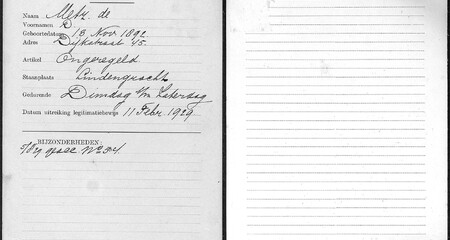 Naam Metz. de
Voornamen D
Geboortedatum 18 Nov 1892
Adres Dijkstraat 45.
Artikel Ongeregeld.
Staanplaats Lindengracht
Gedurende Dinsdag t/m Zaterdag
Datum uitreiking legitimatiebewijs 11 Febr 1929
BIJZONDERHEDEN: